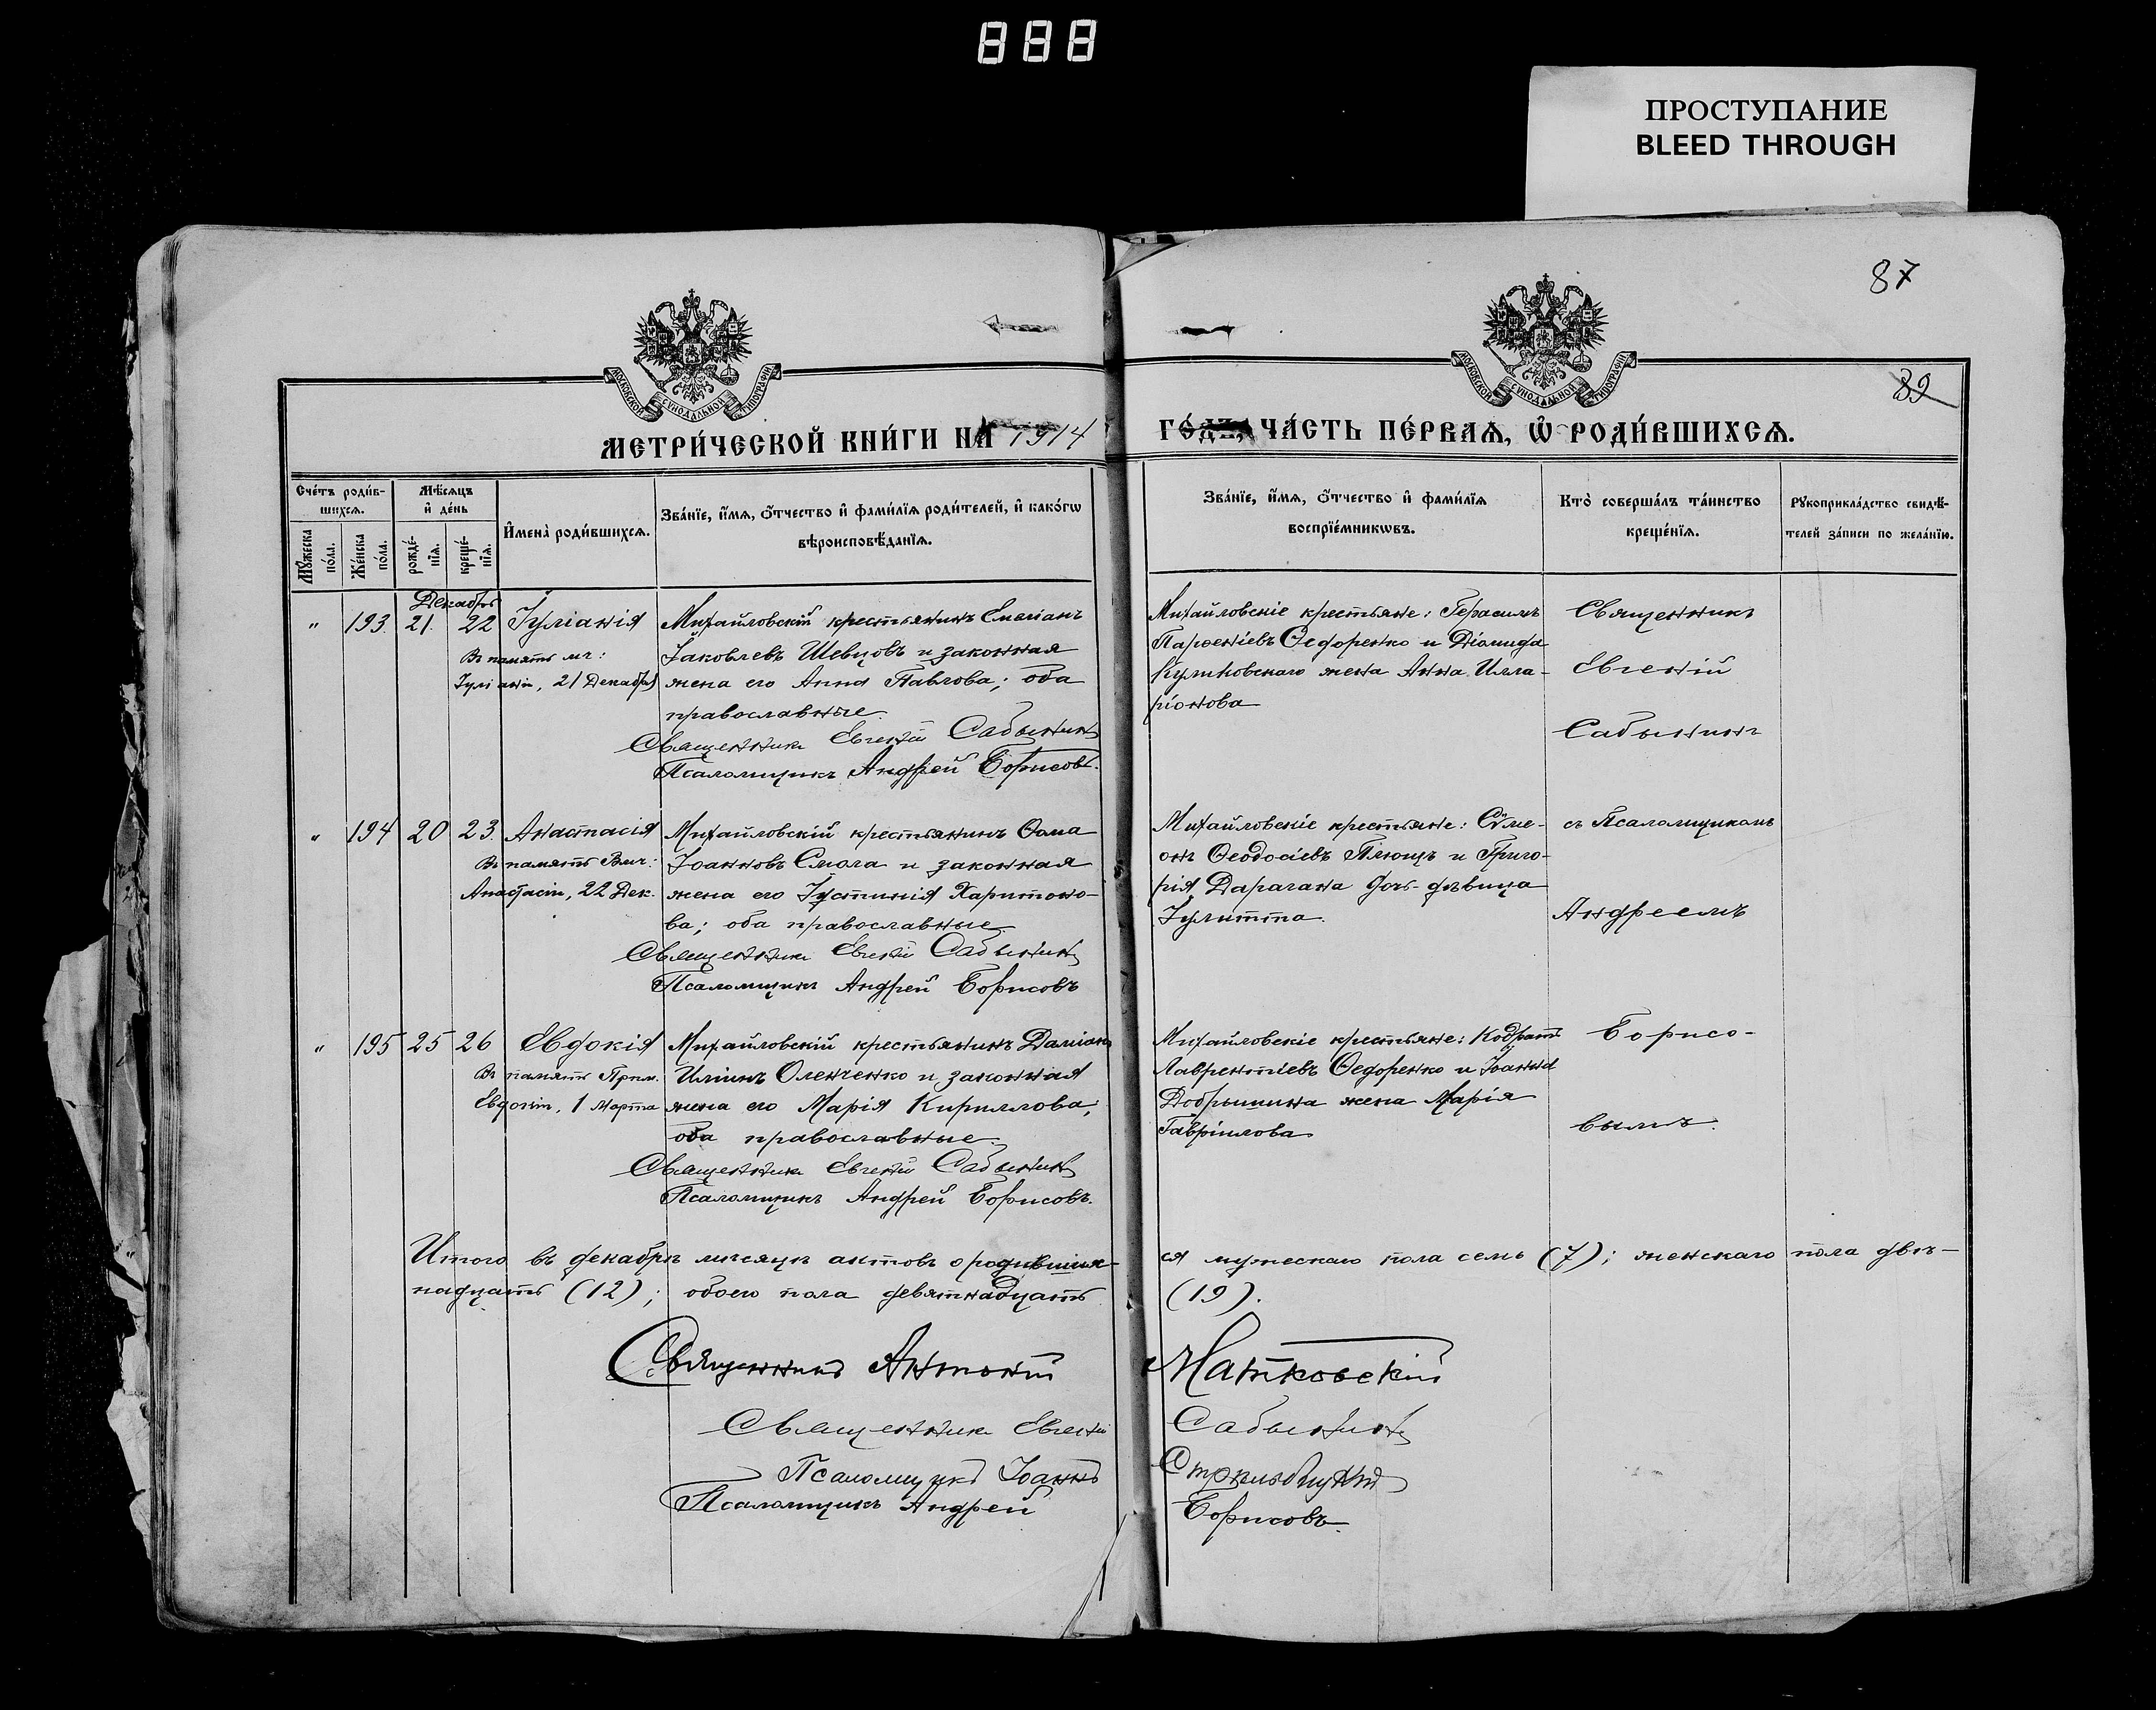 888
ПРОСТУПАНИЕ
BLEED THROUGH
87
МОСКОВСКОЙ СУНОДАЛЬНОЙ ТИПОГРАФІИ
МОСКОВСКОЙ СУНОДАЛЬНОЙ ТИПОГРАФІИ
39
МЕТРИ́ЧЕСКОЙ КНИ́ГИ НА 1914
ГО́ДЪ, ЧА́СТЬ ПЕ́РВАЯ, Ѡ РОДИ́ВШИХСЯ.
Сче́тъ роди́в-
шихся.
Мѣ́сяцъ
и҆ де́нь
Мꙋ́жеска
по́ла.
Же́нска
по́ла.
рожде́-
нїя.
креще́-
нїя.
И҆мена̀ роди́вшихся.
Зва́нїе, и҆́мя, ѻ҆́тчество и҆ фами́лїя роди́телей, и҆ како́гѡ
вѣроисповѣ́данїя.
Зва́нїе, и҆́мя, ѻ҆́тчество и҆ фами́лїя
воспрїе́мникѡвъ.
Кто̀ соверша́лъ та́инство
креще́нїя.
Рꙋкоприкла́дство свидѣ́-
телей за́писи по жела́нїю.
Декабрь
" 193. 21. 22 Іуліанія
Въ память мч:
Іуліаніи, 21 Декабря
Михайловскій крестьянинъ Емеліанъ
Іаковлевъ Шевцовъ и законная
жена его Анна Павлова; оба
православные.
Священникъ Евгеній Сабынинъ
Псаломщикъ Андрей Борисовъ.
Михайловскіе крестьяне: Герасимъ
Парѳеніевъ Ѳедоренко и Діомида
Куликовскаго жена Анна Илла-
ріонова
Священникъ
Евгеній
Сабынинъ
" 194 20 23. Анастасія
Въ память Вмч:
Анастасіи, 22 Дек.
Михайловскій крестьянинъ Ѳома
Іоанновъ Смола и законная
жена его Іустинія Харитоно-
ва; оба православные.
Священникъ Евгеній Сабынинъ
Псаломщикъ Андрей Борисовъ
Михайловскіе крестьяне: Сѵме-
онъ Ѳеодосіевъ Плющъ и Григо-
рія Дарагана дочь-дѣвица
Іулитта.
съ Псаломщикомъ
Андреемъ
" 195 25 26 Евдокія
Въ память Прпм.
Евдокіи, 1 Марта
Михайловскій крестьянинъ Даміанъ
Иліинъ Оленченко и законная
жена его Марія Кириллова;
оба православные.
Священникъ Евгеній Сабынинъ
Псаломщикъ Андрей Борисовъ.
Михайловскіе крестьяне: Кодратъ
Лаврентіевъ Ѳедоренко и Іоанна
Добрышина жена Марія
Гавріилова
Борисо-
вымъ.
Итого въ декабрѣ мѣсяцѣ актовъ о родившихся мужескаго пола семь (7); женскаго пола двѣ-
надцать (12); обоего пола девятнадцать (19).
Священникъ Антоній Матковскій
Священникъ Евгеній Сабынинъ
Псаломщикъ Іоаннъ Стрѣльбицкій
Псаломщикъ Андрей Борисовъ.